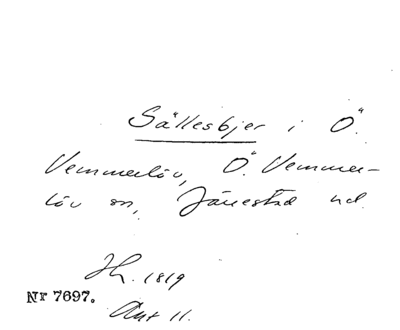 Sällesbjer i Ö.
Vemmerlöv, Ö. Vemmer-
löv sn, Järrestad hd.
Jh. 1819
Nr 7697.
Akt 11.